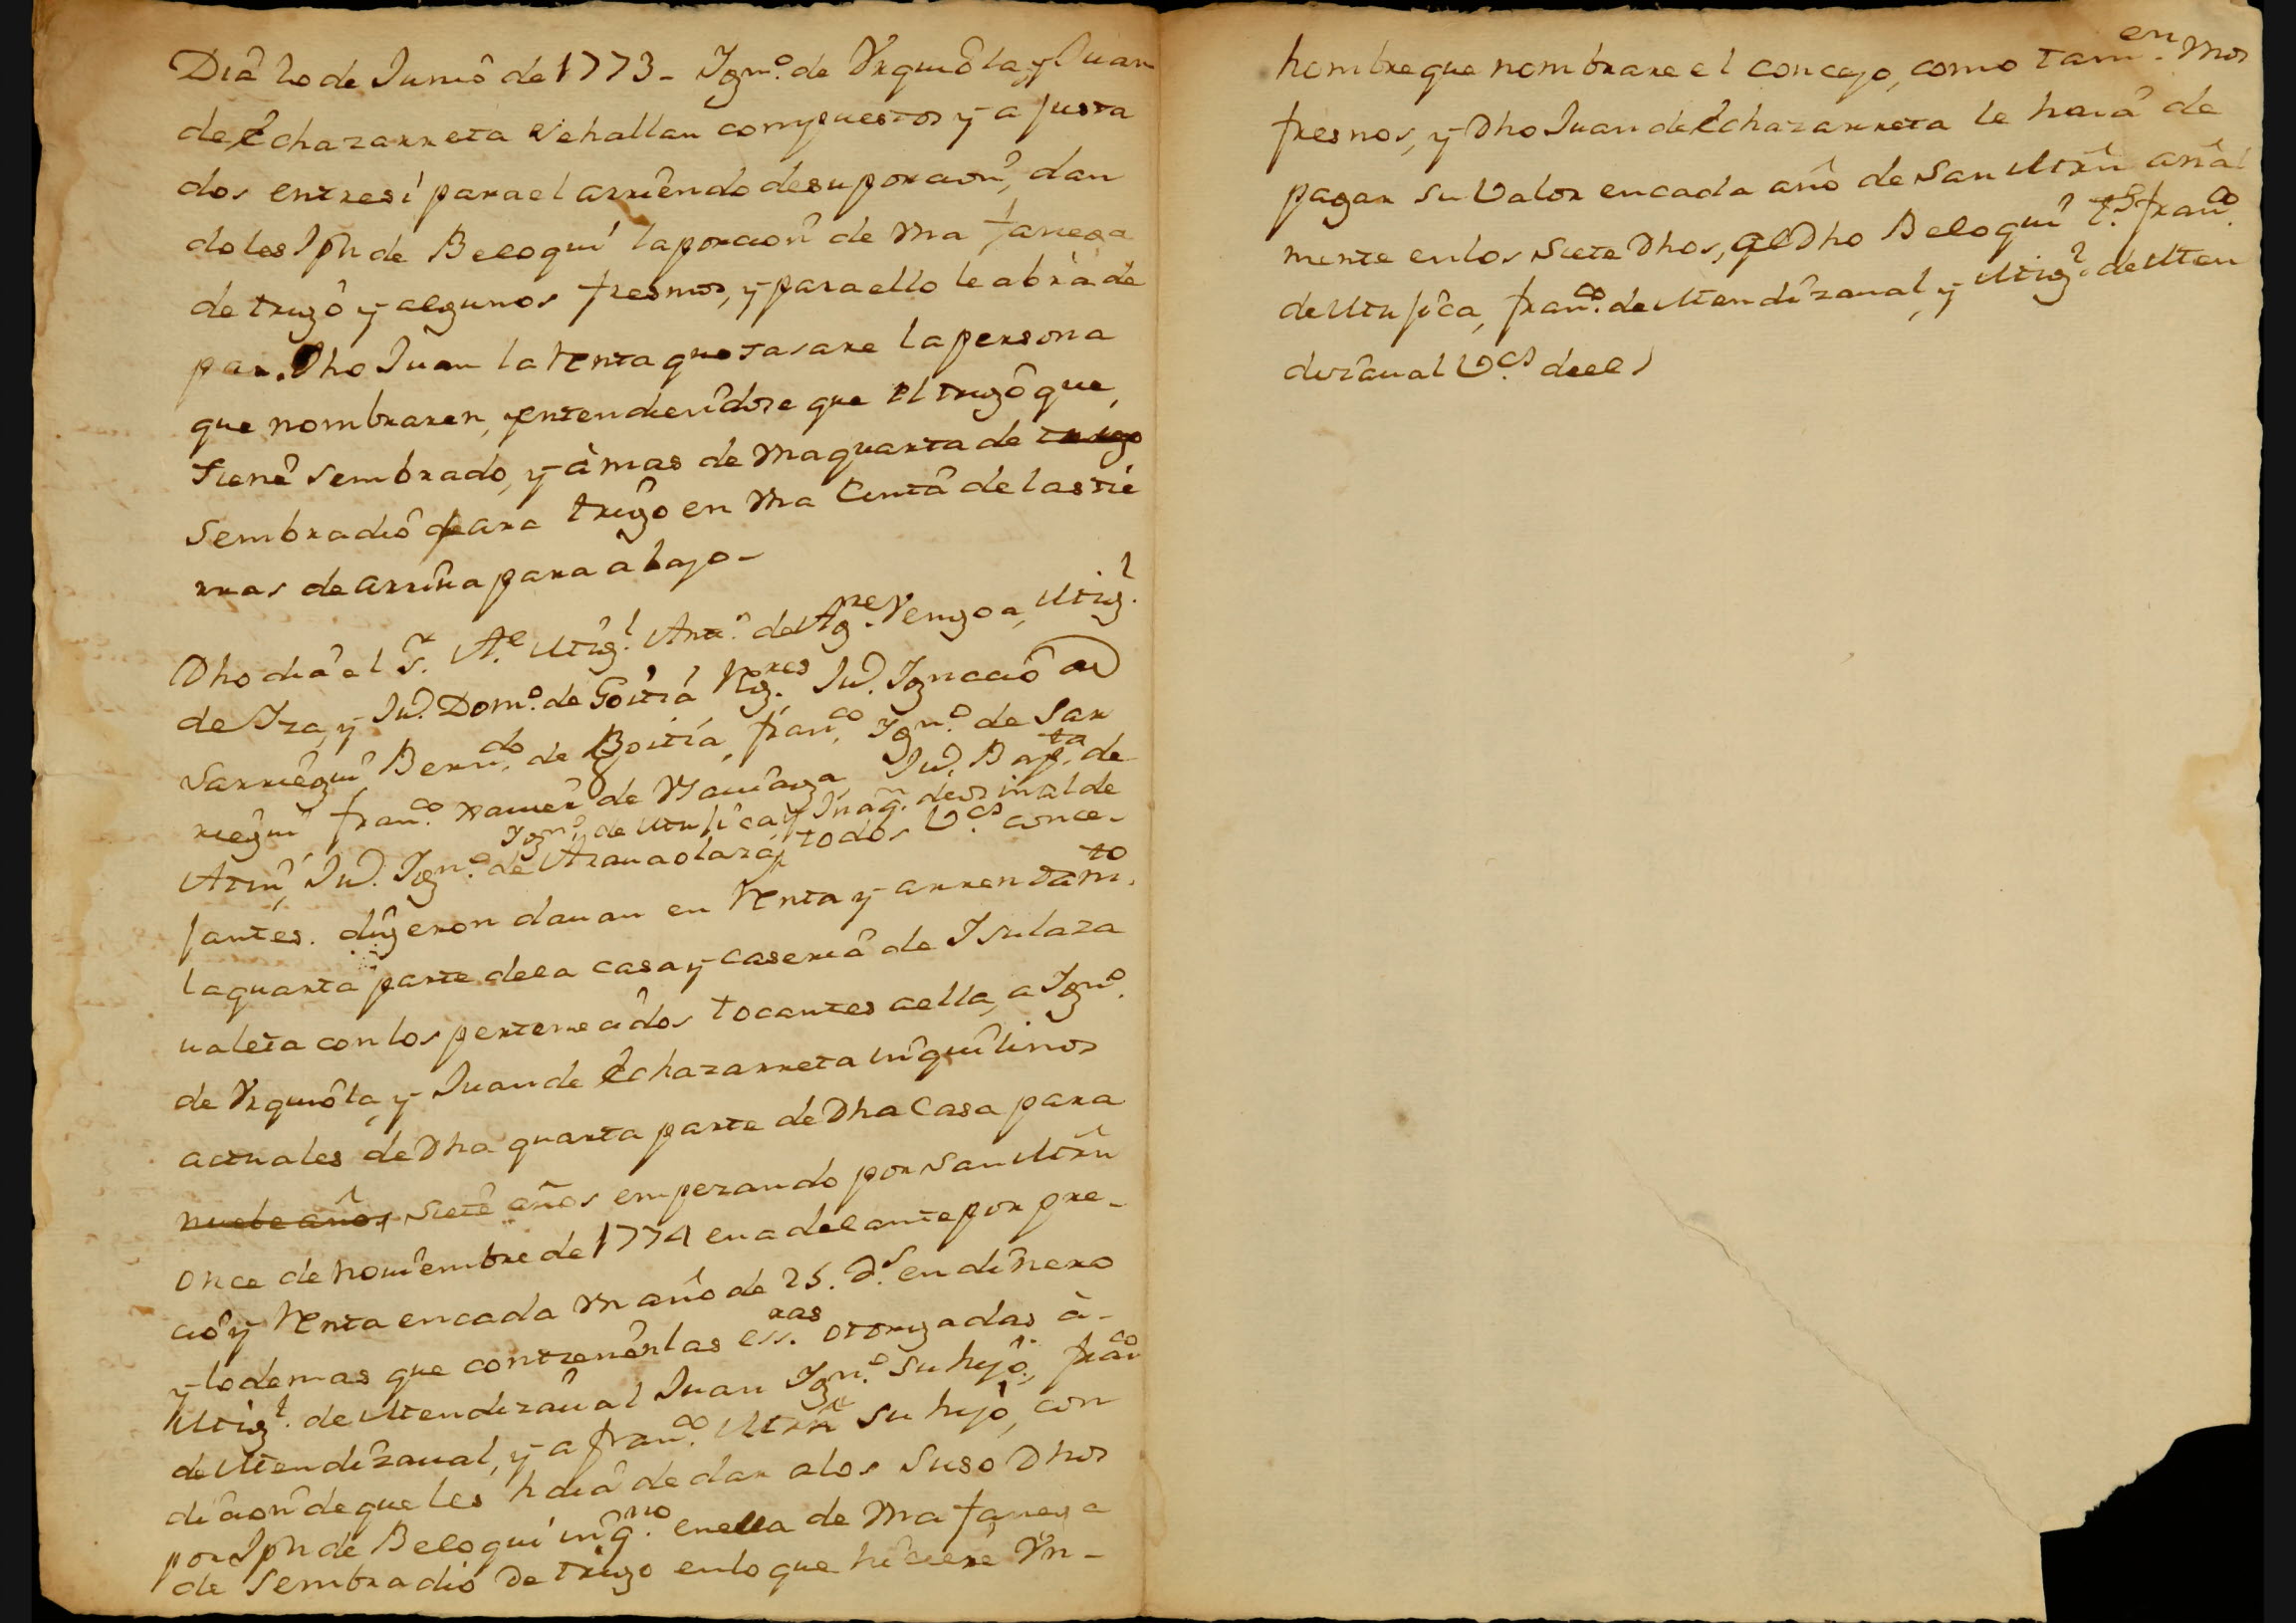 Dia 20 de Junio de 1773 - Ign.º de Vrquiola, y Juan
de Echazarreta se hallan compuestos y ajusta
dos entre si para el arriendo de su porcion, dan
doles Jph de Beloqui la porcion de vna fanega
de trigo y algunos fresnos, y para ello le abrà de
par. Dho Juan la renta que tasare la persona
que nombraren, entendiendose que el trigo que
tiene sembrado, y à mas de vna quarta de trigo
sembradio para trigo en vna Cinta de las tie
rras de arriua para abajo -
Dho dia el S.r A.e Mig.l Ant.º de Ag.rre Vengoa, Mig.l
de Yza, y Ju.n Dom.º de Goitia Rg.res, Ju.n Ignacio de
Sarriegui Bern.do de Goitia, fran.co Ign.º de Sar
riegui fran.co xauier de Ju.n Bap.ta de
Ign.º de Mujica, y Joaq.n de
Atin, Ju.n Ign.º de Aranaolaza, todos V.cs conce-
jantes. dijeron dauan en Renta y arrendam.to
la quarta parte dela casa y caseria de Ysulaza
ualeta con los pertenecidos tocantes aella, a Ign.º
de Vrquiola, y Juan de Echazarreta inquilinos
actuales de Dha quarta parte de Dha Casa para
nuebe años siete años empezando por san Mrn
once de nouiembre de 1774 en adelante por pre-
cio y Renta en cada vn año de 25. d.s en dinero
y lo demas que contienen las ess.ras otorgadas à -
Mig.l de Mendizaual Juan Ign.º su hijo, fran.co
de Mendizaual, y a fran.co Mrn su hijo, con
dicion de que les hdiâ de dar alos suso Dhos
por Jph de Beloqui inq.no en ella de vna fanega
de sembradio De trigo en lo que hiciere Vn -
hombre que nombrare el concejo, como tam.en vnos
fresnos, y Dho Juan de Echazarreta le harà de
pagar su valor en cada año de san Mrn añal
mente en los siete Dhos, al Dho Beloqui t.s fran.co
de Mujica, fran.co de Mendizaual, y Mig.l de Men
dizaual V.cs de el